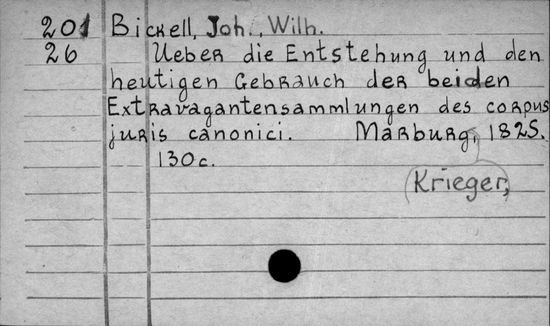 201 Bickell, Joh., Wilh.
26 Ueber die Entstehung und den
heutigen Gebrauch der beiden
Extravagantensammlungen des corpus
juris canonici. Marburg, 1825.
130c.
(Krieger,